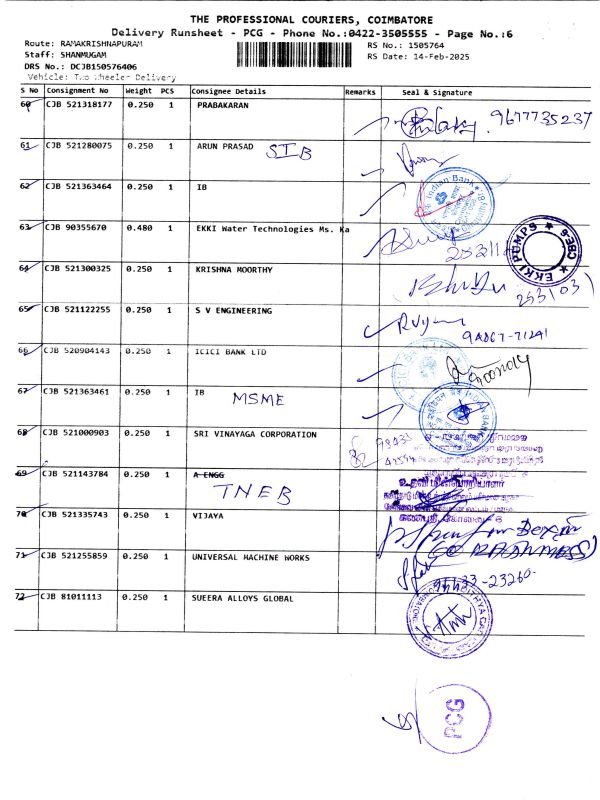 THE PROFESSIONAL COURIERS, COIMBATORE
Delivery Runsheet - PCG - Phone No.:0422-3505555 - Page No.:6
Route: RAMAKRISHNAPURAM
RS No.: 1505764
Staff: SHANMUGAM
RS Date: 14-Feb-2025
DRS No.: DCJB150576406
Vehicle: Two Wheeler Delivery
S No Consignment No Weight PCS Consignee Details Remarks Seal & Signature
60 CJB 521318177 0.250 1 PRABAKARAN 9677735237
61 CJB 521280075 0.250 1 ARUN PRASAD SIB
62 CJB 521363464 0.250 1 IB
Indian Bank
63 CJB 90355670 0.480 1 EKKI Water Technologies Ms. Ka
EKKI PUMPS
64 CJB 521300325 0.250 1 KRISHNA MOORTHY
65 CJB 521122255 0.250 1 S V ENGINEERING
66 CJB 520904143 0.250 1 ICICI BANK LTD
67 CJB 521363461 0.250 1 IB MSME
INDIAN BANK
68 CJB 521000903 0.250 1 SRI VINAYAGA CORPORATION
69 CJB 521143784 0.250 1 A ENGG TNEB
உதவி மின்பொறியாளர்
70 CJB 521335743 0.250 1 VIJAYA
71 CJB 521255859 0.250 1 UNIVERSAL MACHINE WORKS
72 CJB 81011113 0.250 1 SUEERA ALLOYS GLOBAL
PCG